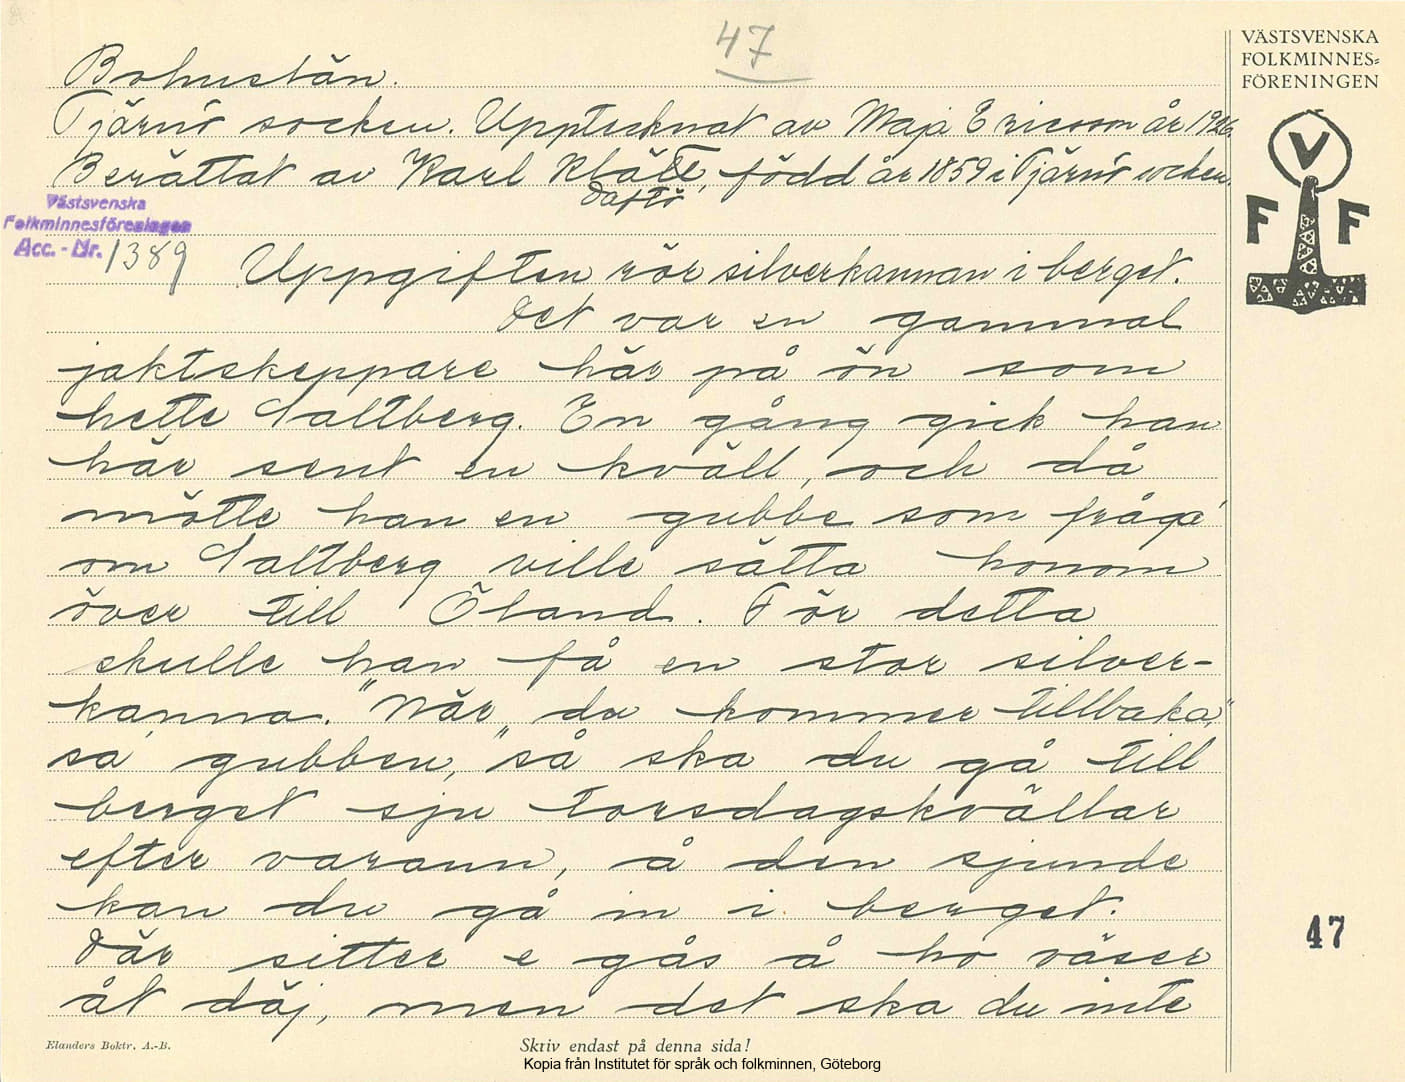 47
VÄSTSVENSKA
FOLKMINNES=
FÖRENINGEN
Bohuslän.
Tjärnö socken. Upptecknat av Maja Ericson år 1926.
Berättat av Karl Klätte, född år 1859 i Tjärnö socken.
Daftö
Västsvenska
Folkminnesföreningen
Acc. - Nr. 1389
V
F F
Uppgiften rör silverkannan i berget.
Det var en gammal
jaktskeppare här på ön som
hette Saltberg. En gång gick han
här sent en kväll, och då
mötte han en gubbe som fråga'
om Saltberg ville sätta honom
över till Öland. För detta
skulle han få en stor silver-
kanna. "När du kommer tillbaka,"
sa gubben, "så ska du gå till
berget sju torsdagskvällar
efter varann, å den sjunde
kan du gå in i berget.
Där sitter e gås å ho väser
åt däj, men det ska du inte
47
Elanders Boktr. A.-B.
Skriv endast på denna sida!
Kopia från Institutet för språk och folkminnen, Göteborg